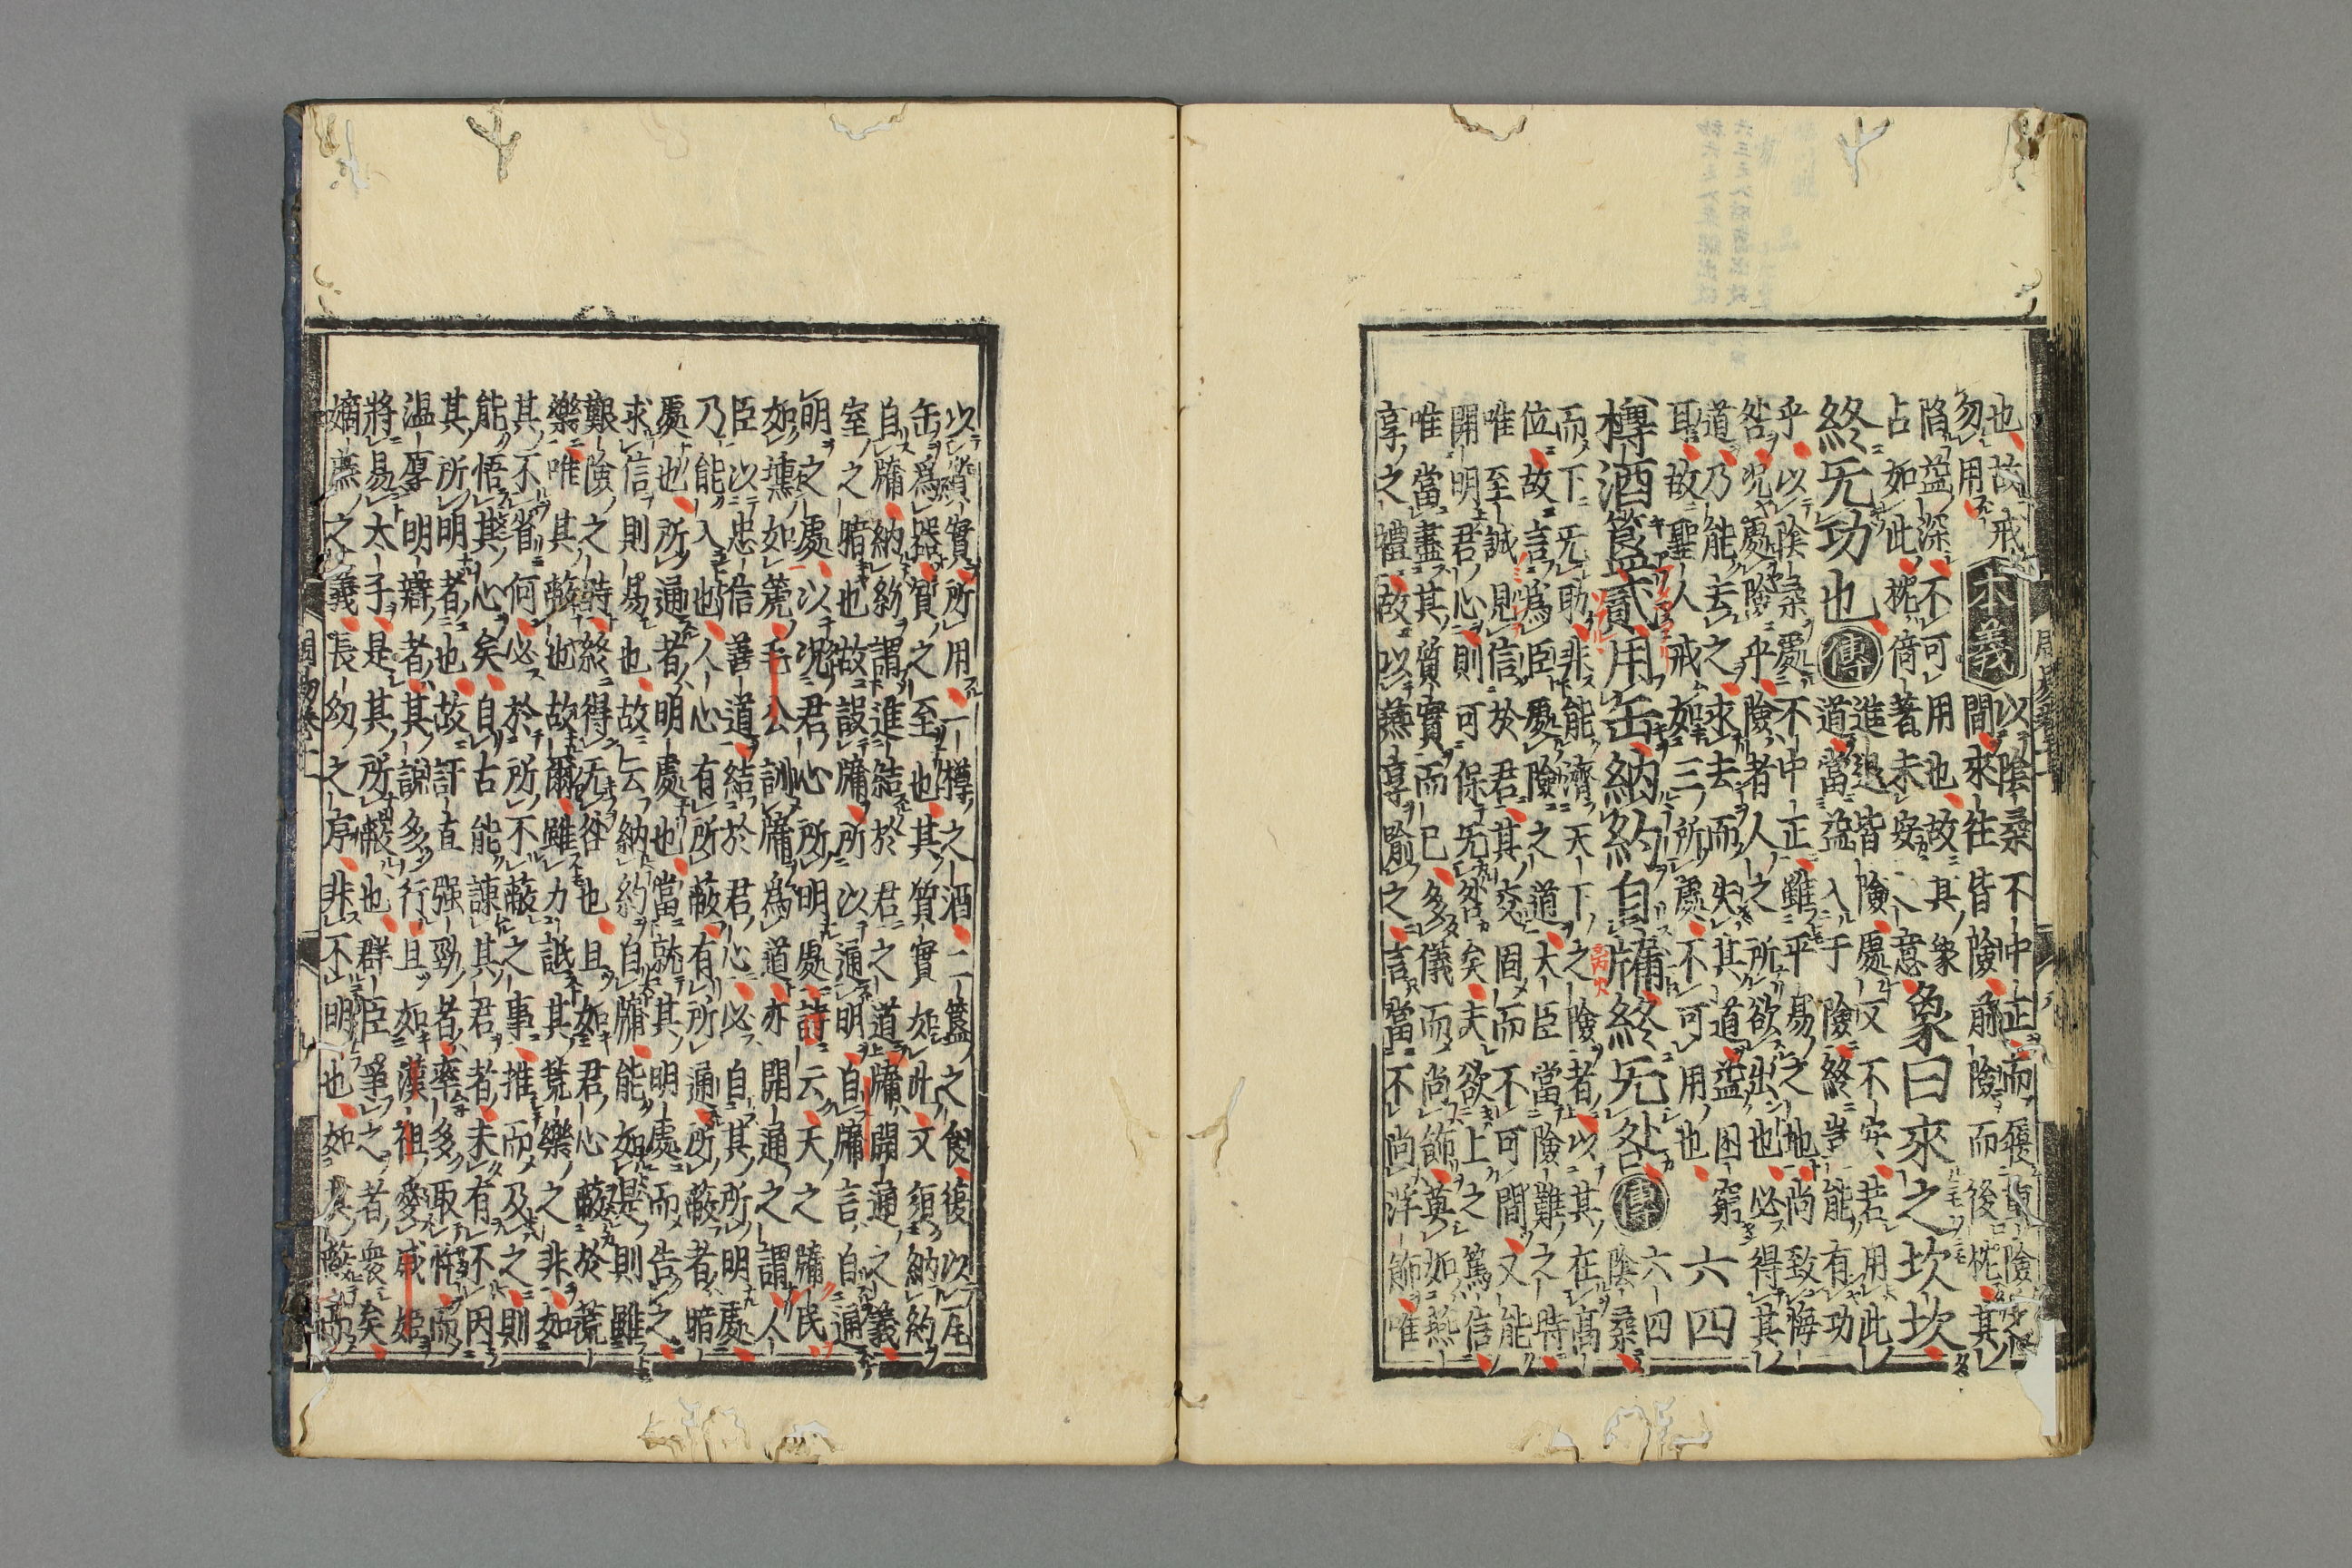 也故戒
勿用
本義
以陰柔不中正而履重險之
間來往皆險前險而後枕其
陷益深不可用也故其象
占如此枕倚著未安之意
象曰來之坎坎
終无功也
傳
進退皆險處又不安若用此
道當益入于險終豈能有功
乎以陰柔處不中正雖平易之地尚致悔
咎況處險乎險者人之所欲出也必得其
道乃能去之求去而失其道益困窮
耳故聖人戒如三所處不可用也
六四
樽酒簋貳用缶納約自牖終无咎
傳
六四
陰柔
而下无助非能濟天下之險者以其在高
位故言爲臣處險之道大臣當險難之時
唯至誠見信於君其交固而不可間又能
開明君心則可保无咎矣夫欲上之篤信
唯當盡其質實而已多儀而尚飾莫如燕
享之禮故以燕享喻之言當不尚浮飾唯
以質實所用一樽之酒二簋之食復以瓦
缶爲器質之至也其質實如此又須納約
自牖納約謂進結於君之道牖開通之義
室之暗也故設牖所以通明自牖言自通
明之處以況君心所明處詩云天之牖民
如壎如篪毛公訓牖爲道亦開通之謂人
臣以忠信善道結於君心必自其所明處
乃能入也人心有所蔽有所通所蔽者暗
處也所通者明處也當就其明處而告之
求信則易也故云納約自牖能如是則雖
艱險之時終得无咎也且如君心蔽於荒
樂唯其蔽也故爾雖力詆其荒樂之非如
其不省何必於所不蔽之事推而及之則
能悟其心矣自古能諫其君者未有不因
其所明者也故訐直强勁者率多取忤而
溫厚明辯者其說多行且如漢祖愛戚姬
將易太子是其所蔽也群臣爭之者衆矣
嫡庶之義長幼之序非不明也如其蔽